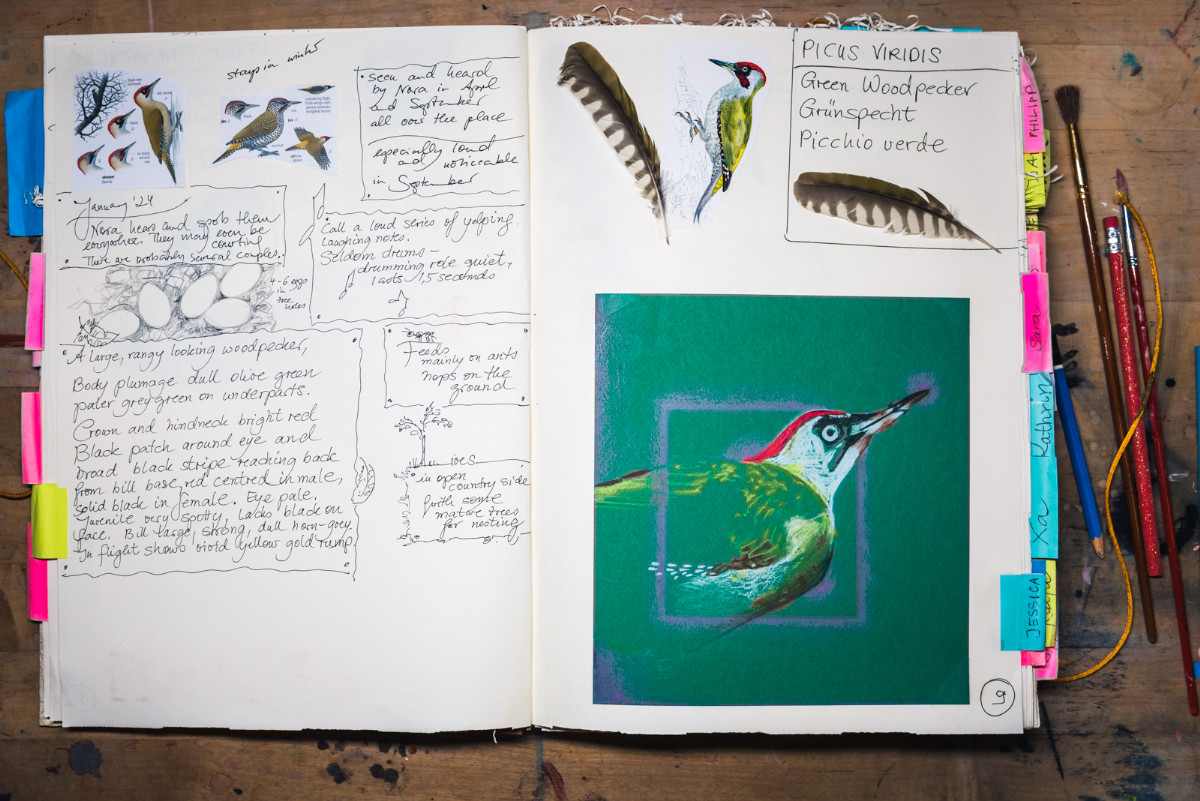 stays in winter
seen and heard
by Nora in April
and September
all over the place
especially loud
and noticeable
in September
January '24
Nora hears and spots them
everywhere. They may even be
courting
There are probably several couples.
4-6 eggs
in
tree
holes
Call a loud series of yelping.
Laughing notes.
Seldom drums –
drumming role quiet,
lasts 1,5 seconds
A large, rangy looking woodpecker,
Body plumage dull olive green
paler grey-green on underparts.
Crown and hindneck bright red
Black patch around eye and
broad black stripe reaching back
from bill base, red centred in male,
solid black in female. Eye pale.
Juvenile very spotty, lacks black on
face. Bill large, strong, dull horn-grey.
In flight shows vivid yellow gold rump.
Feeds
mainly on ants
hops on the
ground
Lives
in open
country side
with some
mature trees
for nesting
PICUS VIRIDIS
Green Woodpecker
Grünspecht
Picchio verde
PHILIPP
Sara
Kathrin
Xa
JESSICA